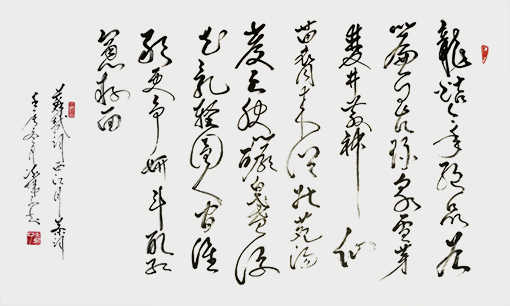 龍焙今年絕品谷
簾自古珍泉雪芽
雙井散神仙
苗裔來從北苑湯
發雲腴釅白盞浮
花乳輕圓人間誰
敢更爭妍斗取紅
窗粉面
蘇軾詞西江月茶詞